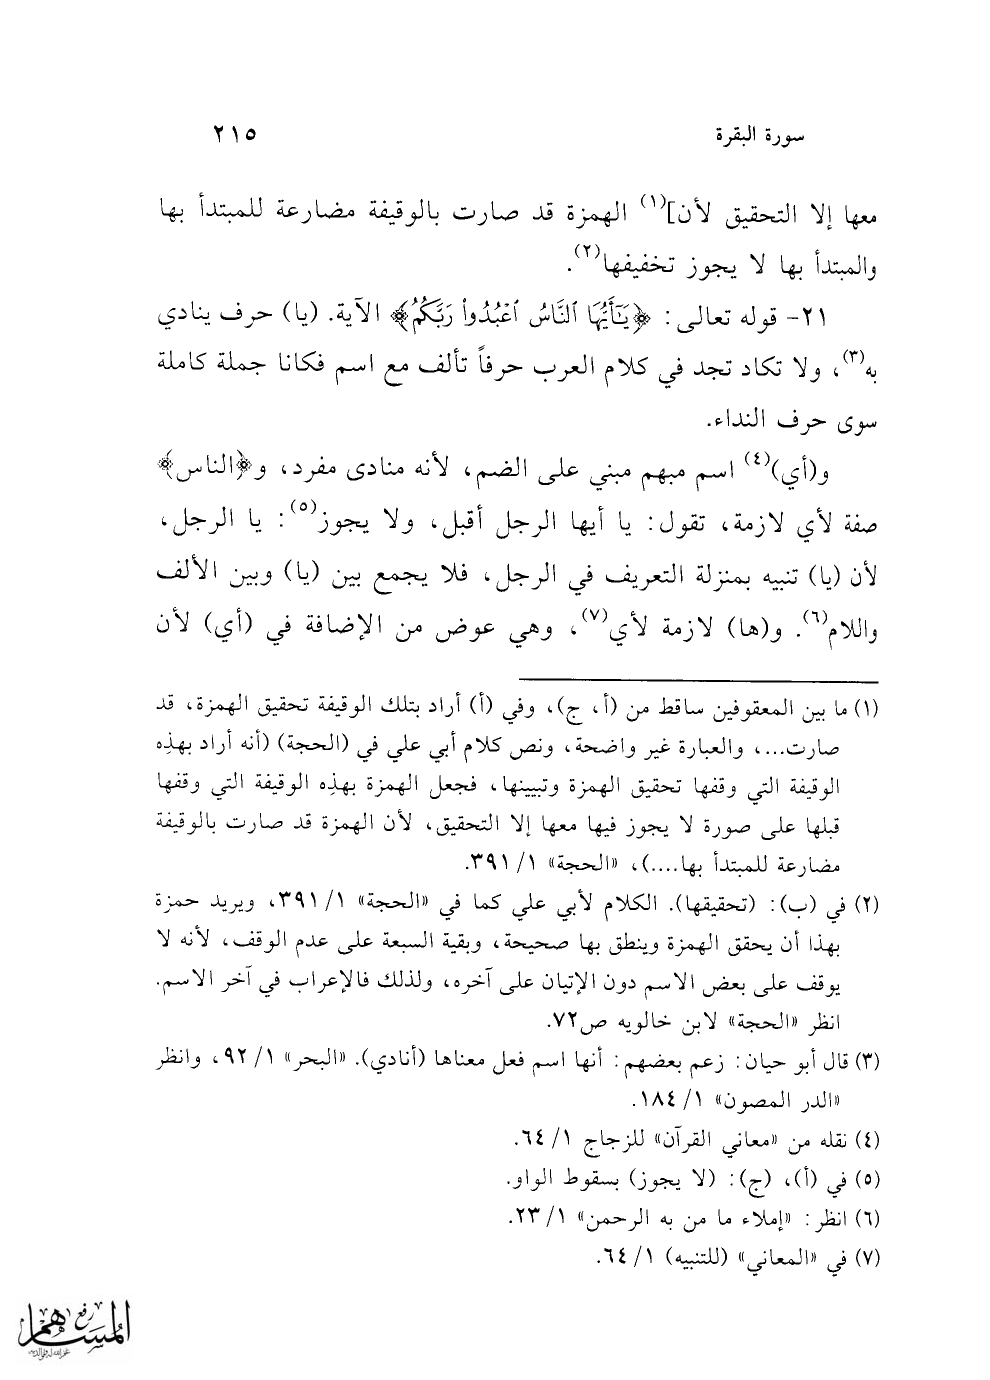 سورة البقرة ٢١٥
معها إلا التحقيق لأن](١) الهمزة قد صارت بالوقيفة مضارعة للمبتدأ بها
والمبتدأ بها لا يجوز تخفيفها(٢).
٢١- قوله تعالى: ﴿يَٰٓأَيُّهَا ٱلنَّاسُ ٱعْبُدُوا۟ رَبَّكُمُ﴾ الآية. (يا) حرف ينادي
به(٣)، ولا تكاد تجد في كلام العرب حرفاً تألف مع اسم فكانا جملة كاملة
سوى حرف النداء.
و(أي)(٤) اسم مبهم مبني على الضم، لأنه منادى مفرد، و﴿الناس﴾
صفة لأي لازمة، تقول: يا أيها الرجل أقبل، ولا يجوز(٥): يا الرجل،
لأن (يا) تنبيه بمنزلة التعريف في الرجل، فلا يجمع بين (يا) وبين الألف
واللام(٦). و(ها) لازمة لأي(٧)، وهي عوض من الإضافة في (أي) لأن
(١) ما بين المعقوفين ساقط من (أ، ج)، وفي (أ) أراد بتلك الوقيفة تحقيق الهمزة، قد
صارت...، والعبارة غير واضحة، ونص كلام أبي علي في (الحجة) (أنه أراد بهذِه
الوقيفة التي وقفها تحقيق الهمزة وتبيينها، فجعل الهمزة بهذِه الوقيفة التي وقفها
قبلها على صورة لا يجوز فيها معها إلا التحقيق، لأن الهمزة قد صارت بالوقيفة
مضارعة للمبتدأ بها....)، «الحجة» ١/ ٣٩١.
(٢) في (ب): (تحقيقها). الكلام لأبي علي كما في «الحجة» ١/ ٣٩١، ويريد حمزة
بهذا أن يحقق الهمزة وينطق بها صحيحة، وبقية السبعة على عدم الوقف، لأنه لا
يوقف على بعض الاسم دون الإتيان على آخره، ولذلك فالإعراب في آخر الاسم.
انظر «الحجة» لابن خالويه ص٧٢.
(٣) قال أبو حيان: زعم بعضهم: أنها اسم فعل معناها (أنادي). «البحر» ١/ ٩٢، وانظر
«الدر المصون» ١/ ١٨٤.
(٤) نقله من «معاني القرآن» للزجاج ١/ ٦٤.
(٥) في (أ)، (ج): (لا يجوز) بسقوط الواو.
(٦) انظر: «إملاء ما من به الرحمن» ١/ ٢٣.
(٧) في «المعاني» (للتنبيه) ١/ ٦٤.
رفع
المساهم